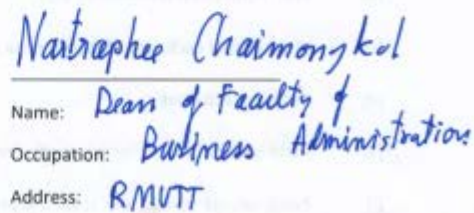 Nartraphee Chaimongkol
Name: Dean of Faculty of
Occupation: Business Administration
Address: RMUTT